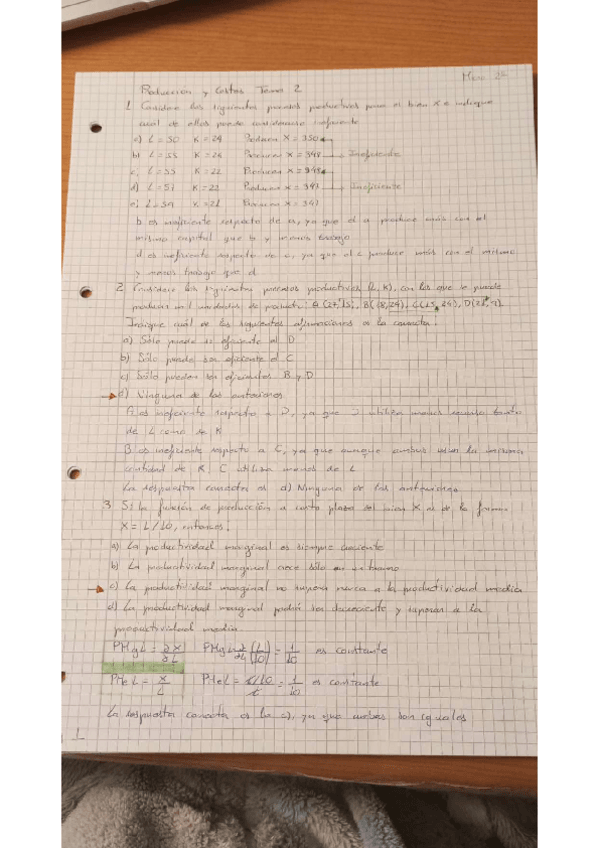 Micro
Producción y Costes Tema 2
1. Considere los siguientes procesos productivos para el bien X e indique
cuál de ellos puede considerarse ineficiente
a) L = 50 K = 24 Producen X = 350
b) L = 55 K = 24 Producen X = 348 → Ineficiente
c) L = 55 K = 22 Producen X = 348
d) L = 57 K = 22 Producen X = 347 → Ineficiente
e) L = 59 K = 21 Producen X = 347
b es ineficiente respecto de a, ya que el a produce más con el
mismo capital que b y menos trabajo
d es ineficiente respecto de c, ya que el c produce más con el mismo
y menos trabajo que d
2. Considere los siguientes procesos productivos (L, K), con los que se puede
producir unidades de producto: A (27, 15), B (28, 24), C (25, 24), D (2 , 9)
Indique cuál de las siguientes afirmaciones es la correcta:
a) Sólo puede ser eficiente el D
b) Sólo puede ser eficiente el C
c) Sólo pueden ser eficientes B y D
d) Ninguna de las anteriores
A es ineficiente respecto a D, ya que D utiliza menos tanto
de L como de K
B es ineficiente respecto a C, ya que aunque ambos usan la misma
cantidad de K C utiliza menos de L
La respuesta correcta es d) Ninguna de las anteriores
3. Si la función de producción a corto plazo del bien X es de la forma
X = L/10, entonces:
a) La productividad marginal es siempre creciente
b) La productividad marginal crece sólo en un tramo
c) La productividad marginal no supera nunca a la productividad media
d) La productividad marginal podría ser decreciente y superar a la
productividad media
PMgL = ∂X/∂L PMgL = ∂/∂L (L/10) = 1/10 es constante
PMeL = X/L PMeL = (L/10)/L = 1/10 es constante
La respuesta correcta es la c), ya que ambas son iguales
1